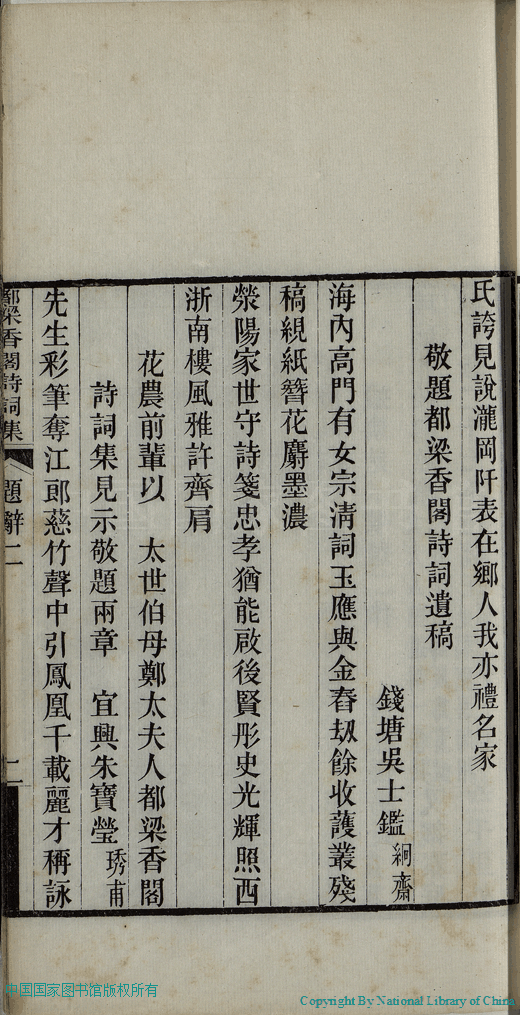 氏誇見說瀧岡阡表在鄉人我亦禮名家
敬題都梁香閣詩詞遺稿
錢塘吳士鑑 絅齋
海內高門有女宗清詞玉應與金舂刼餘收護叢殘
稿綥紙簪花麝墨濃
滎陽家世守詩箋忠孝猶能啟後賢彤史光輝照西
浙南樓風雅許齊肩
花農前輩以 太世伯母鄭太夫人都梁香閣
詩詞集見示敬題兩章 宜興朱寶瑩 琇甫
先生彩筆奪江郎慈竹聲中引鳳凰千載麗才稱詠
都梁香閣詩詞集 題辭二 二
中国国家图书馆版权所有
Copyright By National Library of China